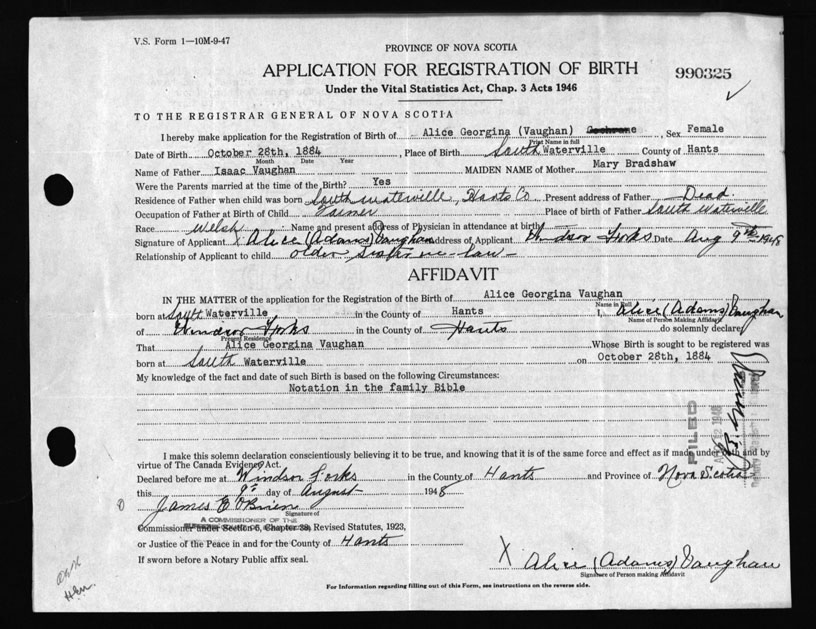 V.S. Form 1—10M-9-47
PROVINCE OF NOVA SCOTIA
APPLICATION FOR REGISTRATION OF BIRTH
990325
Under the Vital Statistics Act, Chap. 3 Acts 1946
TO THE REGISTRAR GENERAL OF NOVA SCOTIA
I hereby make application for the Registration of Birth of Alice Georgina (Vaughan) Cochrane, Sex Female
Print Name in full
Date of Birth October 28th, 1884, Place of Birth South Waterville County of Hants
Month Date Year
Name of Father Isaac Vaughan MAIDEN NAME of Mother Mary Bradshaw
Were the Parents married at the time of the Birth? Yes
Residence of Father when child was born South Waterville, Hants Co Present address of Father Dead.
Occupation of Father at Birth of Child Farmer Place of birth of Father South Waterville
Race Welsh Name and present address of Physician in attendance at birth
Signature of Applicant X Alice (Adams) Vaughan address of Applicant Windsor Forks Date Aug 9th 1948
Relationship of Applicant to child older sister-in-law
AFFIDAVIT
IN THE MATTER of the application for the Registration of the Birth of Alice Georgina Vaughan
Name in Full
born at South Waterville in the County of Hants I, Alice (Adams) Vaughan
Name of Person Making Affidavit
of Windsor Forks in the County of Hants do solemnly declare
Present Residence
That Alice Georgina Vaughan Whose Birth is sought to be registered was
born at South Waterville on October 28th, 1884
My knowledge of the fact and date of such Birth is based on the following Circumstances:
Notation in the family Bible
FILED
I make this solemn declaration conscientiously believing it to be true, and knowing that it is of the same force and effect as if made under oath and by
virtue of The Canada Evidence Act.
Declared before me at Windsor Forks in the County of Hants and Province of Nova Scotia
this 9th day of August 1948
James E OBrien
Signature of
A COMMISSIONER OF THE
Commissioner under Section 6, Chapter 38, Revised Statutes, 1923,
or Justice of the Peace in and for the County of Hants
If sworn before a Notary Public affix seal.
X Alice (Adams) Vaughan
Signature of Person making Affidavit
For Information regarding filling out of this Form, see instructions on the reverse side.